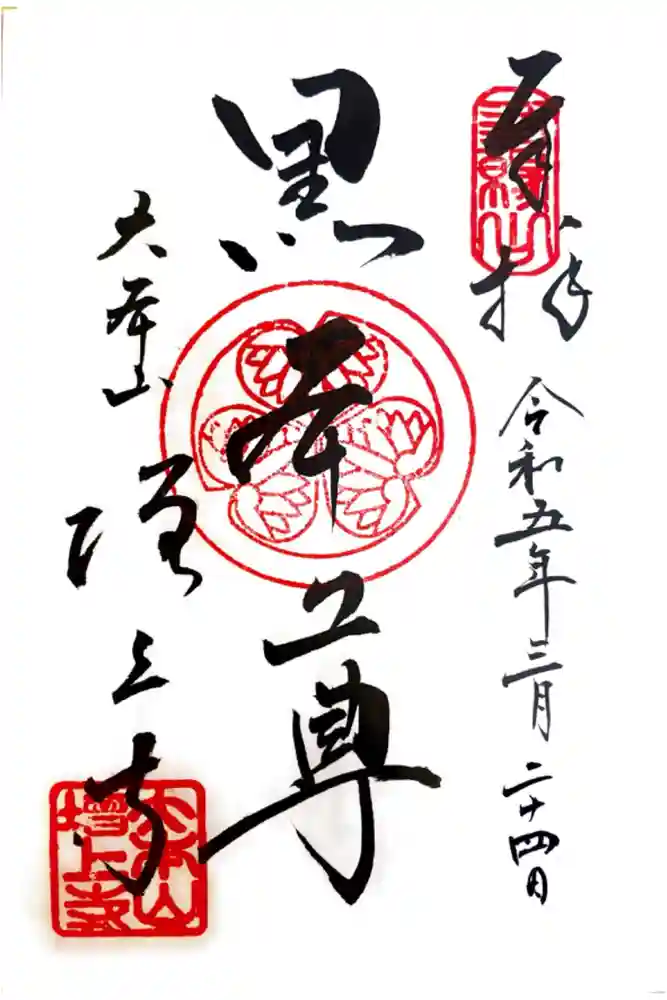 奉拝
三縁山
令和五年三月二十四日
黒本尊
大本山
増上寺
大本山
増上寺